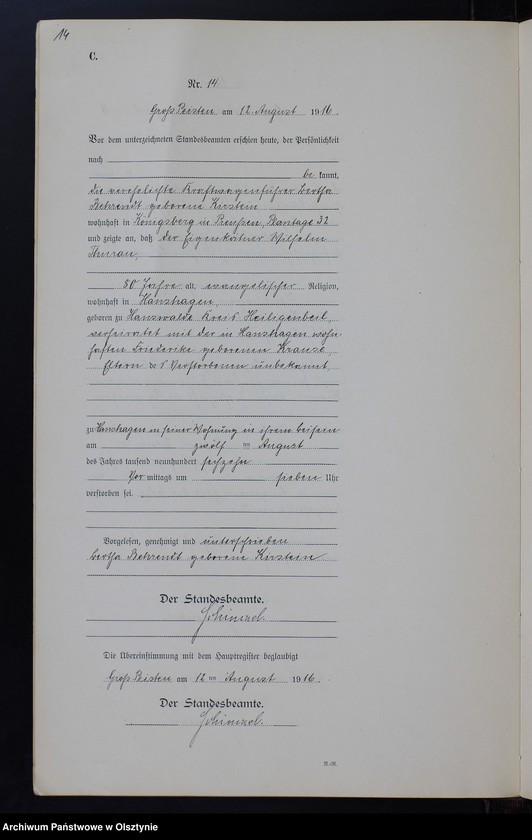 14
C.
Nr. 14
Groß Peisten am 12. August 1916.
Vor dem unterzeichneten Standesbeamten erschien heute, der Persönlichkeit
nach
be kannt,
die verehelichte Kraftwagenführer Bertha
Behrendt geborene Kirstein
wohnhaft in Königsberg in Preußen, 32
und zeigte an, daß der Eigenkätner Wilhelm
Thurau,
80 Jahre alt, evangelischer Religion,
wohnhaft in Hanshagen,
geboren zu Hanswalde Kreis Heiligenbeil,
verheiratet mit der in Hanshagen wohn-
haften Friederike geborenen Krause,
Eltern des Verstorbenen unbekannt,
zu Hanshagen in seiner Wohnung in ihrem Beisein
am zwölften August
des Jahres tausend neunhundert sechzehn
Vor mittags um sieben Uhr
verstorben sei.
Vorgelesen, genehmigt und unterschrieben
Bertha Behrendt geborene Kirstein
Der Standesbeamte.
Schimmel.
Die Übereinstimmung mit dem Hauptregister beglaubigt
Groß Peisten am 12ten August 1916.
Der Standesbeamte.
Schimmel.
Archiwum Państwowe w Olsztynie